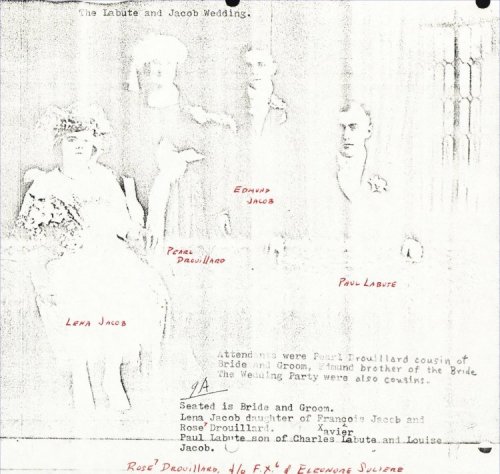 The Labute and Jacob Wedding.
EDMUND
JACOB
PEARL
DROUILLARD
PAUL LABUTE
LENA JACOB
Attendants were Pearl Drouillard cousin of
Bride and Groom, Edmund brother of the Bride
The Wedding Party were also cousins.
9A
Seated is Bride and Groom.
Lena Jacob daughter of François Jacob and
Rose⁷ Drouillard. Xavier
Paul Labute son of Charles Labute and Louise
Jacob.
ROSE⁷ DROUILLARD, d/o F.X.⁶ & ELEONORE SOLIERE